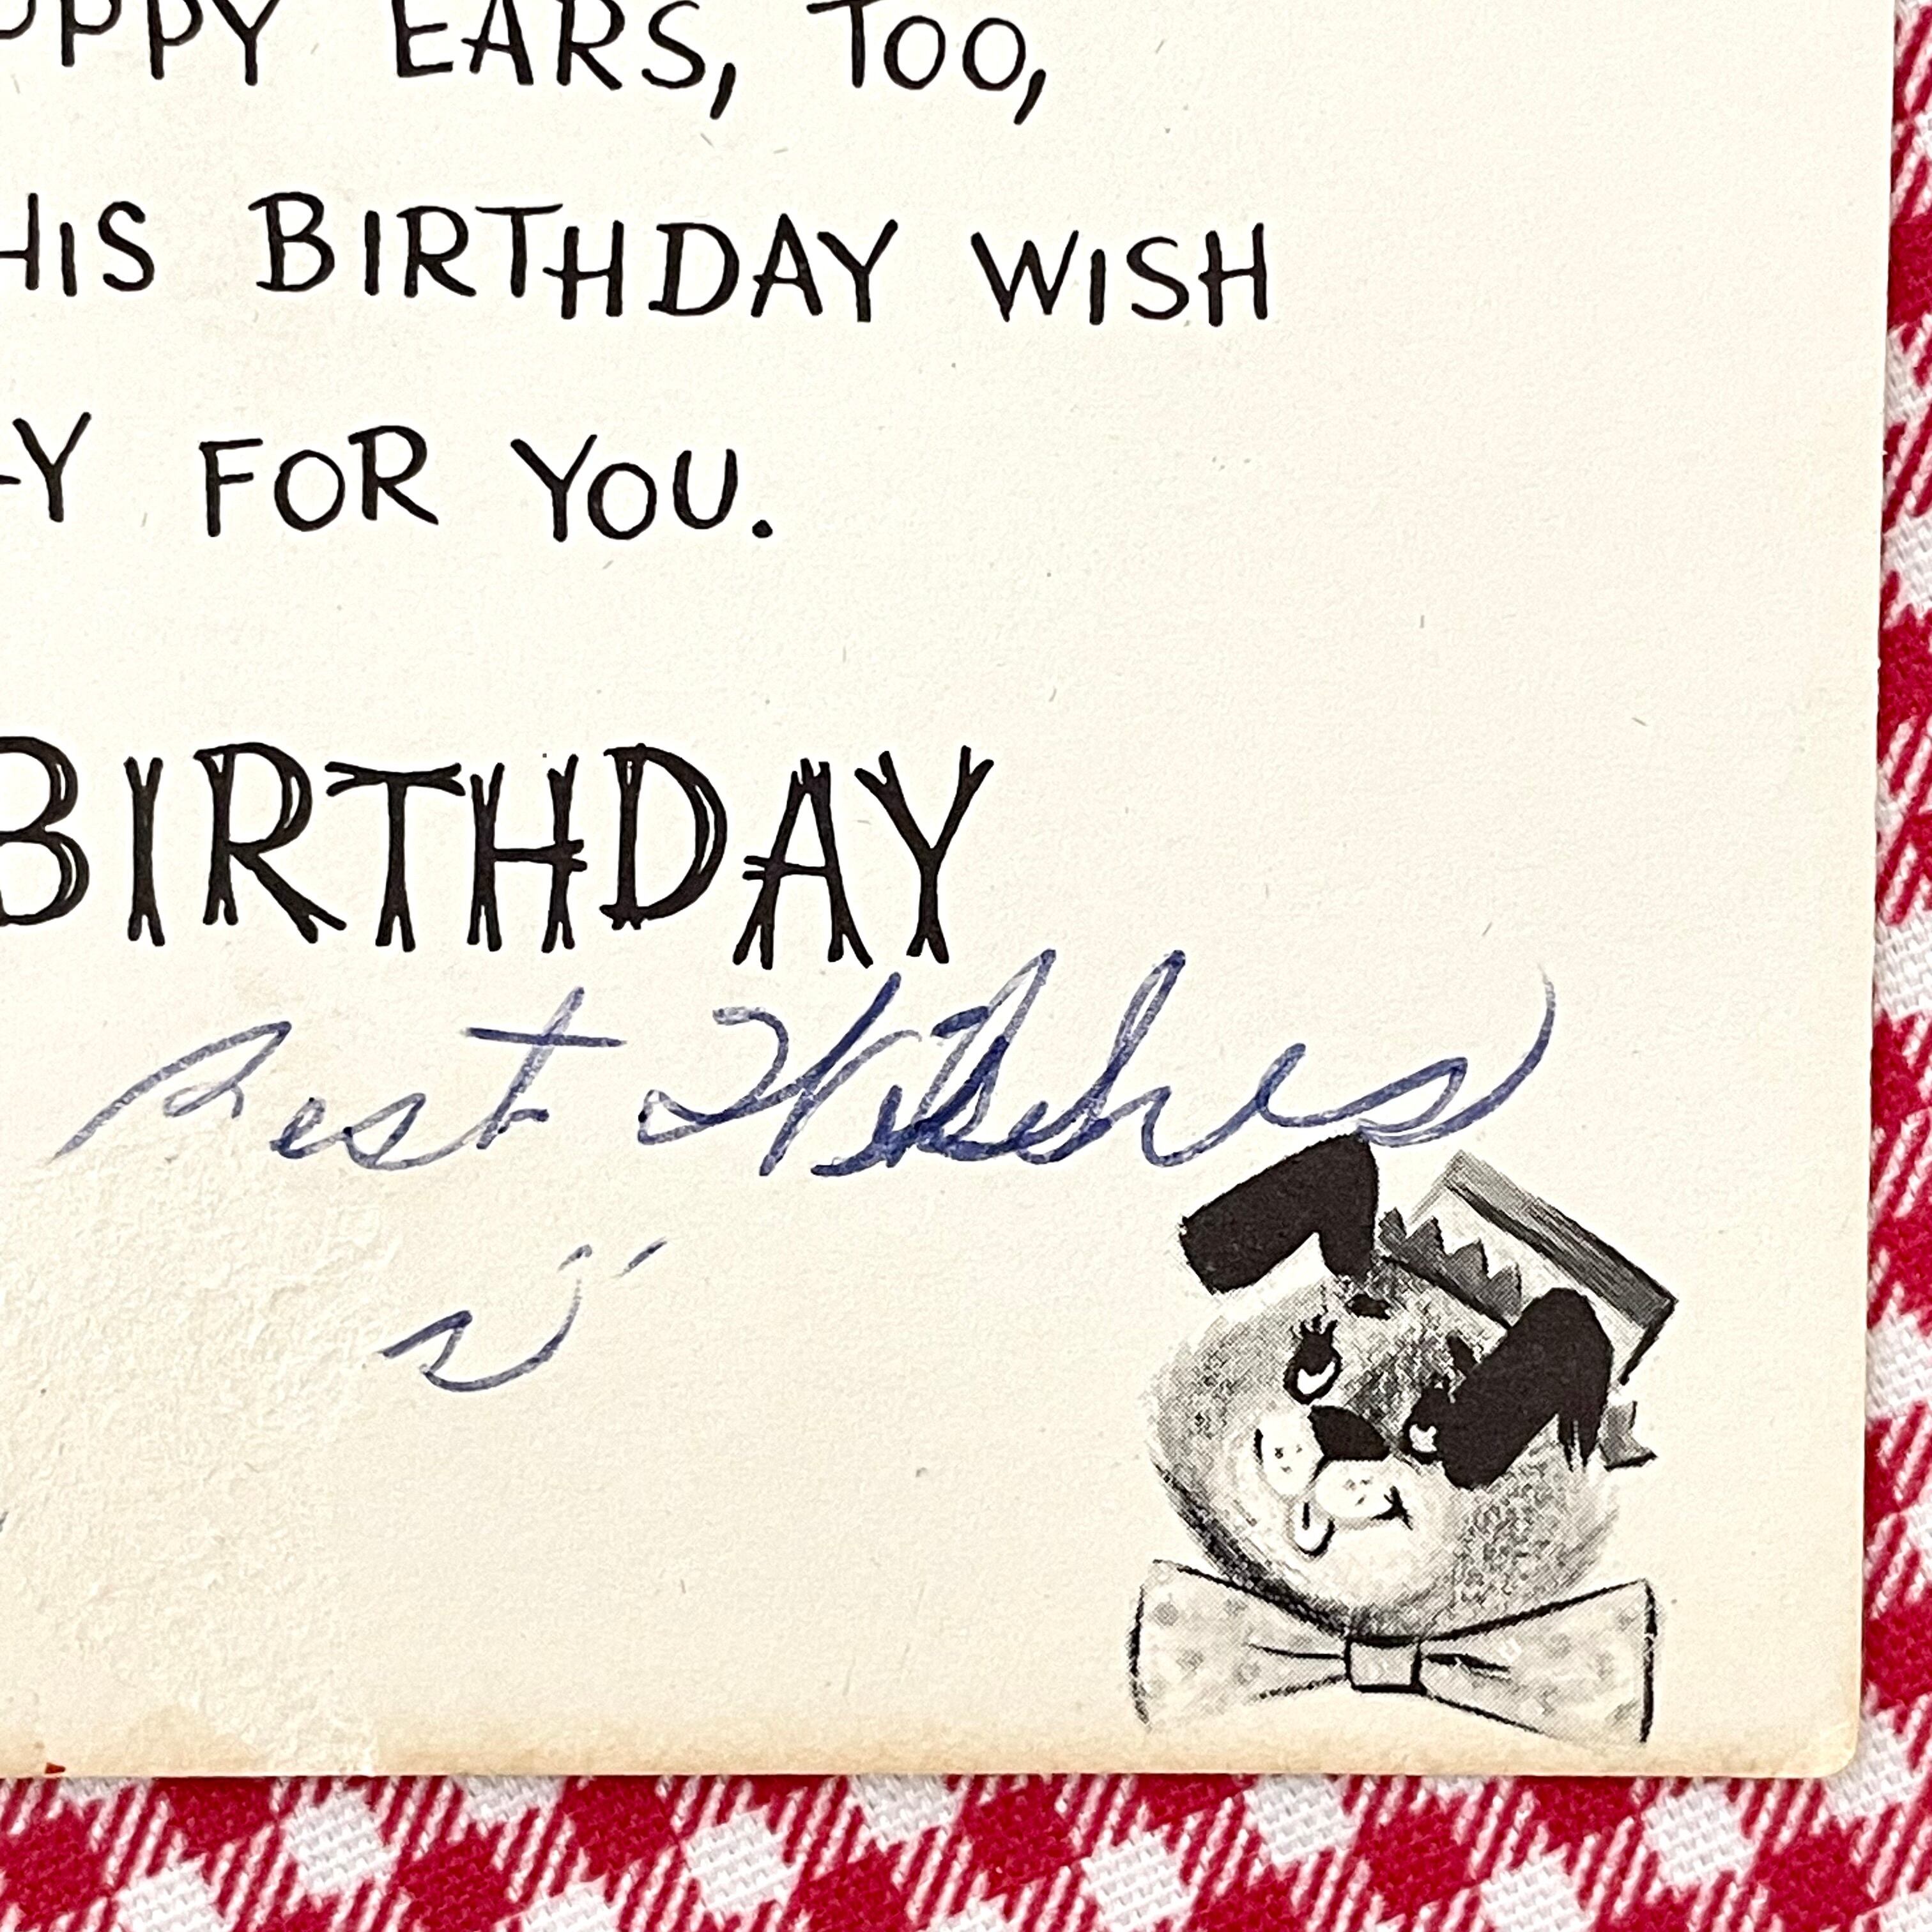 PPY EARS, TOO,
HIS BIRTHDAY WISH
Y FOR YOU.
BIRTHDAY
Best Wishes